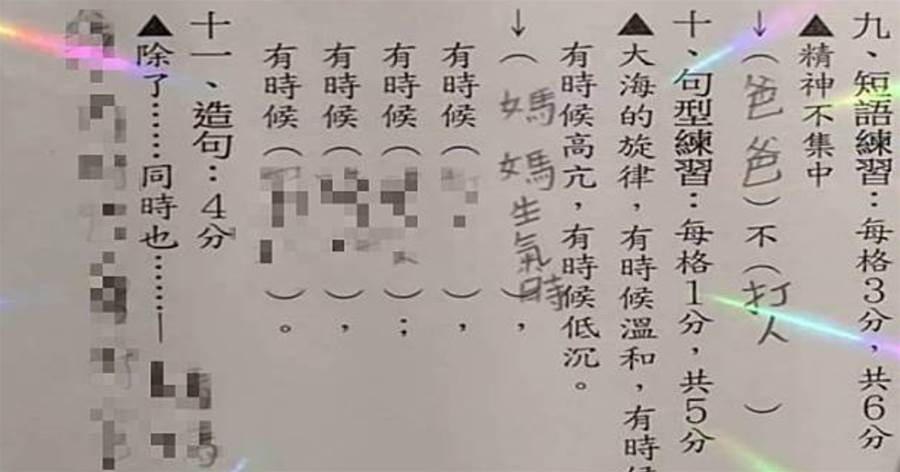 九、短語練習：每格3分，共6分
▲精神不集中
↓（爸爸）不（打人）
十、句型練習：每格1分，共5分
▲大海的旋律，有時候溫和，有時候
有時候高亢，有時候低沉。
↓（媽媽生氣時），
有時候（），
有時候（）；
有時候（），
有時候（）。
十一、造句：4分
▲除了……同時也……—